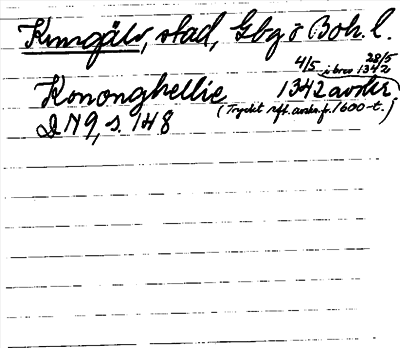 Kungälv, stad, Gbg o Boh. l.
4/5 i brev 28/5 1342
Kononghellie 1342 avskr
(Tryckt eft. avskr. fr. 1600-t.)
DN 9, s. 148